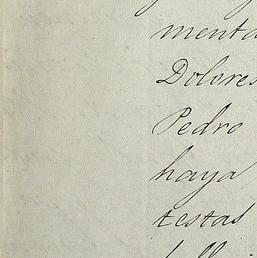 menta
Dolores
Pedro
haya
testas